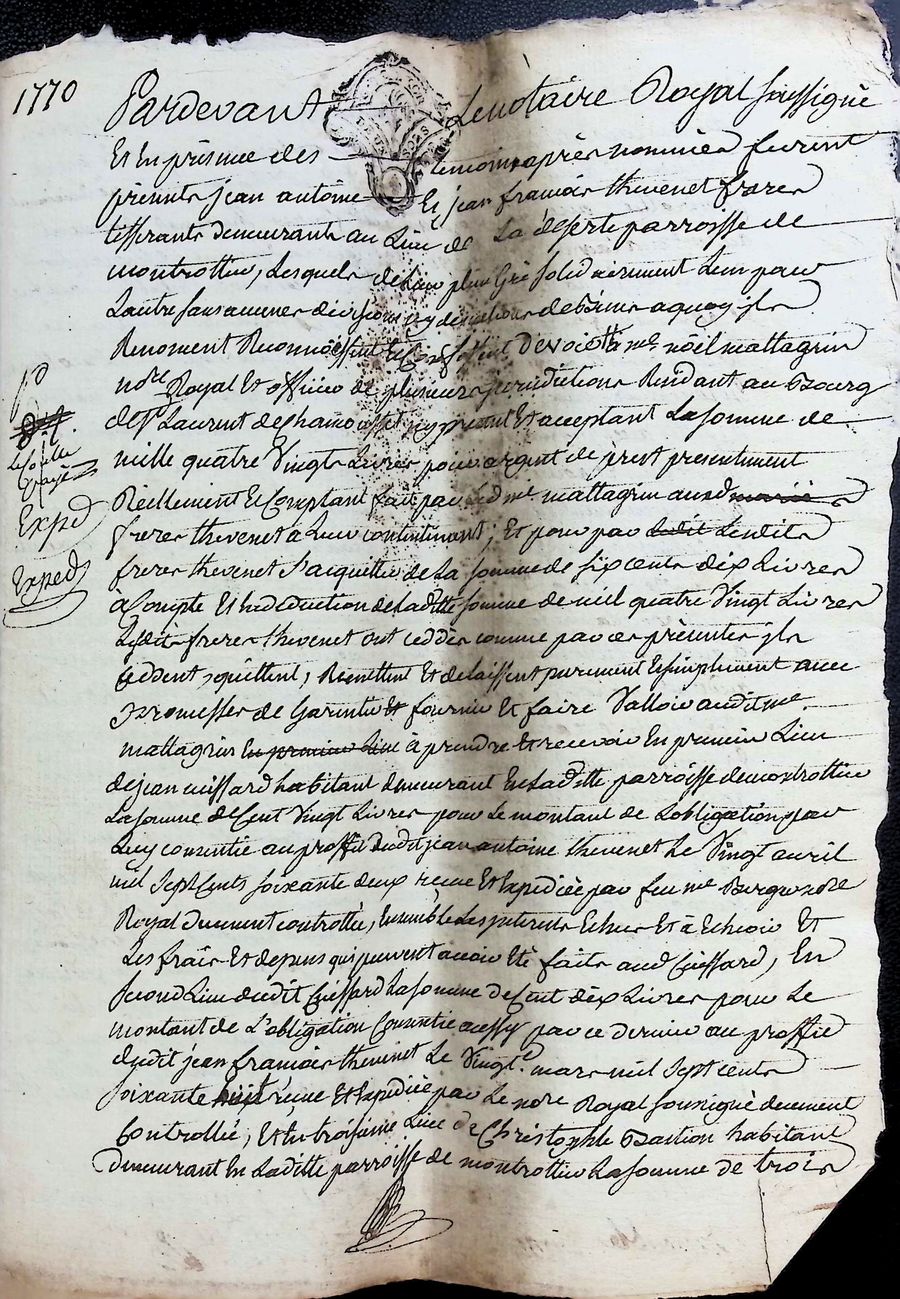 1770
Pardevant Le notaire Royal soussigné
Et En présence des temoins après nommés furent
présents jean antoine Et jean francois thevenet freres
tisserants demeurants au Lieu de La déserte parroisse de
montrottier, Lesquels de Leur plus Gré solidairement L'un pour
L'autre sans aucunes divisions ny
Renoncent Reconnoissent Et Confessent devoir à me noël mattagrin
nore Royal Et officier de plusieurs jurisdictions Residant au Bourg
de St Laurent de Chamousset, icy present Et acceptant La somme de
mille quatre Vingts Livres pour argent de prest presentement
Réellement Et Comptant fait par Led me mattagrin auxd
freres thevenet à Leur contentement; Et pour par Lesdits
freres thevenet s'acquitter de La somme de six cents dix Livres
à Compte Et En deduction de Laditte somme de mil quatre Vingt Livres
Lesdits freres thevenet ont ceddés comme par ces présentes ils
Ceddent, quittent, Remettent Et delaissent purement Et simplement avec
Promesses de Garentir Et fournir Et faire Valloir audit me
mattagrin En premier Lieu à prendre Et recevoir En premier Lieu
de jean habitant demeurant En Laditte parroisse de montrottier
La somme de Cent Vingt Livres pour Le montant de L'obligation par
Luy consentie au proffit dudit jean antoine thevenet Le Vingt avril
mil sept Cents soixante deux reçue Et Expediée par feu me nore
Royal duement controllée, Ensemble Les interets Echus Et à Echeoir Et
Les frais Et depens qui peuvent avoir Eté faits aud , En
second Lieu dudit La somme de Cent dix Livres pour Le
montant de L'obligation Consentie aussy par ce dernier au proffit
dudit jean francois thevenet Le Vingt mars mil sept cents
soixante huit reçue Et Expediée par Le nore Royal soussigné duement
Controllée, Et En troisieme Lieu de Christophle Bastion habitant
demeurant En Laditte parroisse de montrottier La somme de trois
Exped
Exped